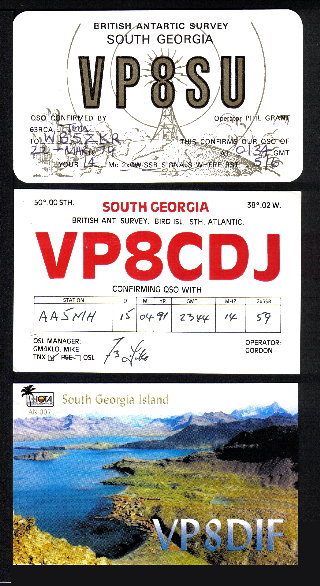 BRITISH ANTARTIC SURVEY
SOUTH GEORGIA
VP8SU
QSO CONFIRMED BY Operator PHIL GRANT
63RCA
TO WB5ZKR THIS CONFIRMS OUR QSO OF
AT 0134 GMT
YOUR 14 MHz 2xCW-SSB SIGNALS WHERE RST 5/6
50°.00 STH. SOUTH GEORGIA 38°.02 W.
BRITISH ANT SURVEY. BIRD ISL. STH. ATLANTIC.
VP8CDJ
CONFIRMING QSO WITH
STATION D M YR GMT MHZ 2xSSB
AA5MH 15 04 91 2344 14 59
QSL MANAGER: OPERATOR:
GM4KLO, MIKE GORDON
TNX PSE QSL 73 Mike
IOTA
AN-007
South Georgia Island
VP8DIF